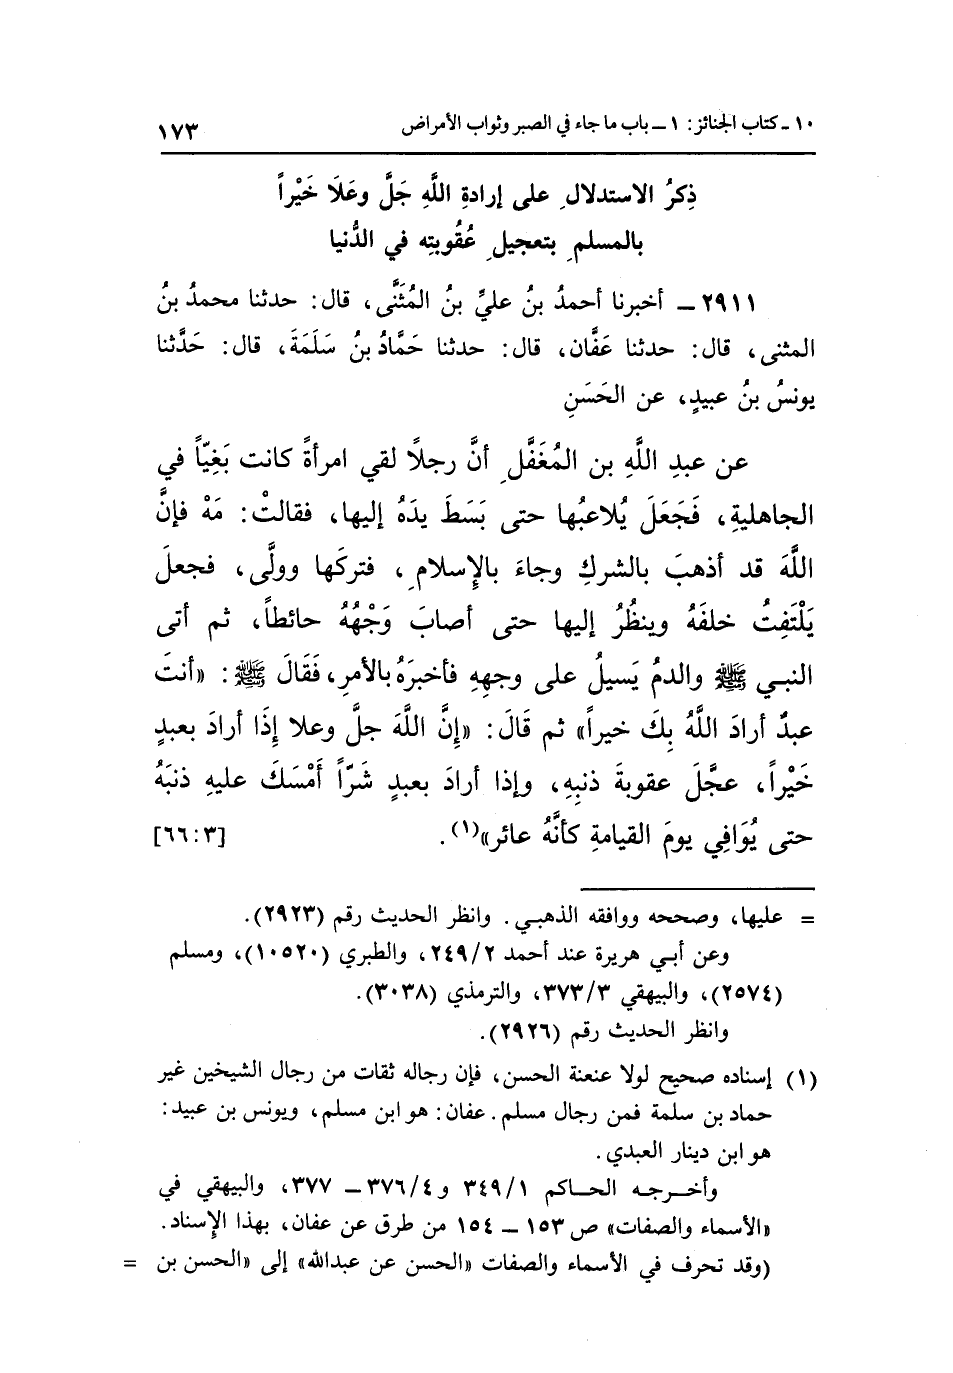 ١٠ - كتاب الجنائز: ١ - باب ما جاء في الصبر وثواب الأمراض ١٧٣
ذِكرُ الاستدلالِ على إرادةِ اللَّهِ جَلَّ وعَلَا خَيْراً
بالمسلمِ بتعجيلِ عُقُوبتِه في الدُّنيا
٢٩١١ - أخبرنا أحمدُ بنُ عليِّ بنُ المُثَنَّى، قال: حدثنا محمدُ بنُ
المثنى، قال: حدثنا عَفَّان، قال: حدثنا حَمَّادُ بنُ سَلَمَةَ، قال: حَدَّثنا
يونسُ بنُ عبيدٍ، عن الحَسَنِ
عن عبدِ اللَّهِ بن المُغَفَّلِ أنَّ رجلًا لقي امرأةً كانت بَغِيّاً في
الجاهليةِ، فَجَعَلَ يُلاعبُها حتى بَسَطَ يدَهُ إليها، فقالتْ: مَهْ فإنَّ
اللَّهَ قد أذهبَ بالشركِ وجاءَ بالإسلامِ، فتركَها وولَّى، فجعلَ
يَلْتَفِتُ خلفَهُ وينظُرُ إليها حتى أصابَ وَجْهُهُ حائطاً، ثم أتى
النبي ﷺ والدمُ يَسيلُ على وجههِ فأخبرَهُ بالأمرِ، فَقَالَ ﷺ: «أنتَ
عبدٌ أرادَ اللَّهُ بِكَ خيراً» ثم قَالَ: «إنَّ اللَّهَ جلَّ وعلا إذَا أرادَ بعبدٍ
خَيْراً، عجَّلَ عقوبةَ ذنبِهِ، وإذا أرادَ بعبدٍ شَرّاً أَمْسَكَ عليهِ ذنبَهُ
حتى يُوَافِي يومَ القيامةِ كأنَّهُ عائر»(١). [٦٦:٣]
= عليها، وصححه ووافقه الذهبي. وانظر الحديث رقم (٢٩٢٣).
وعن أبي هريرة عند أحمد ٢٤٩/٢، والطبري (١٠٥٢٠)، ومسلم
(٢٥٧٤)، والبيهقي ٣٧٣/٣، والترمذي (٣٠٣٨).
وانظر الحديث رقم (٢٩٢٦).
(١) إسناده صحيح لولا عنعنة الحسن، فإن رجاله ثقات من رجال الشيخين غير
حماد بن سلمة فمن رجال مسلم. عفان: هو ابن مسلم، ويونس بن عبيد:
هو ابن دينار العبدي.
وأخرجه الحاكم ٣٤٩/١ و ٣٧٦/٤ - ٣٧٧، والبيهقي في
«الأسماء والصفات» ص ١٥٣ - ١٥٤ من طرق عن عفان، بهذا الإسناد.
(وقد تحرف في الأسماء والصفات «الحسن عن عبدالله» إلى «الحسن بن =